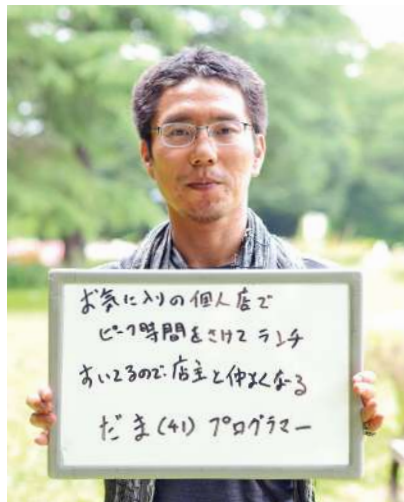 お気に入りの個人店で
ピーク時間をさけてランチ
すいてるので店主と仲よくなる
だま(41) プログラマー